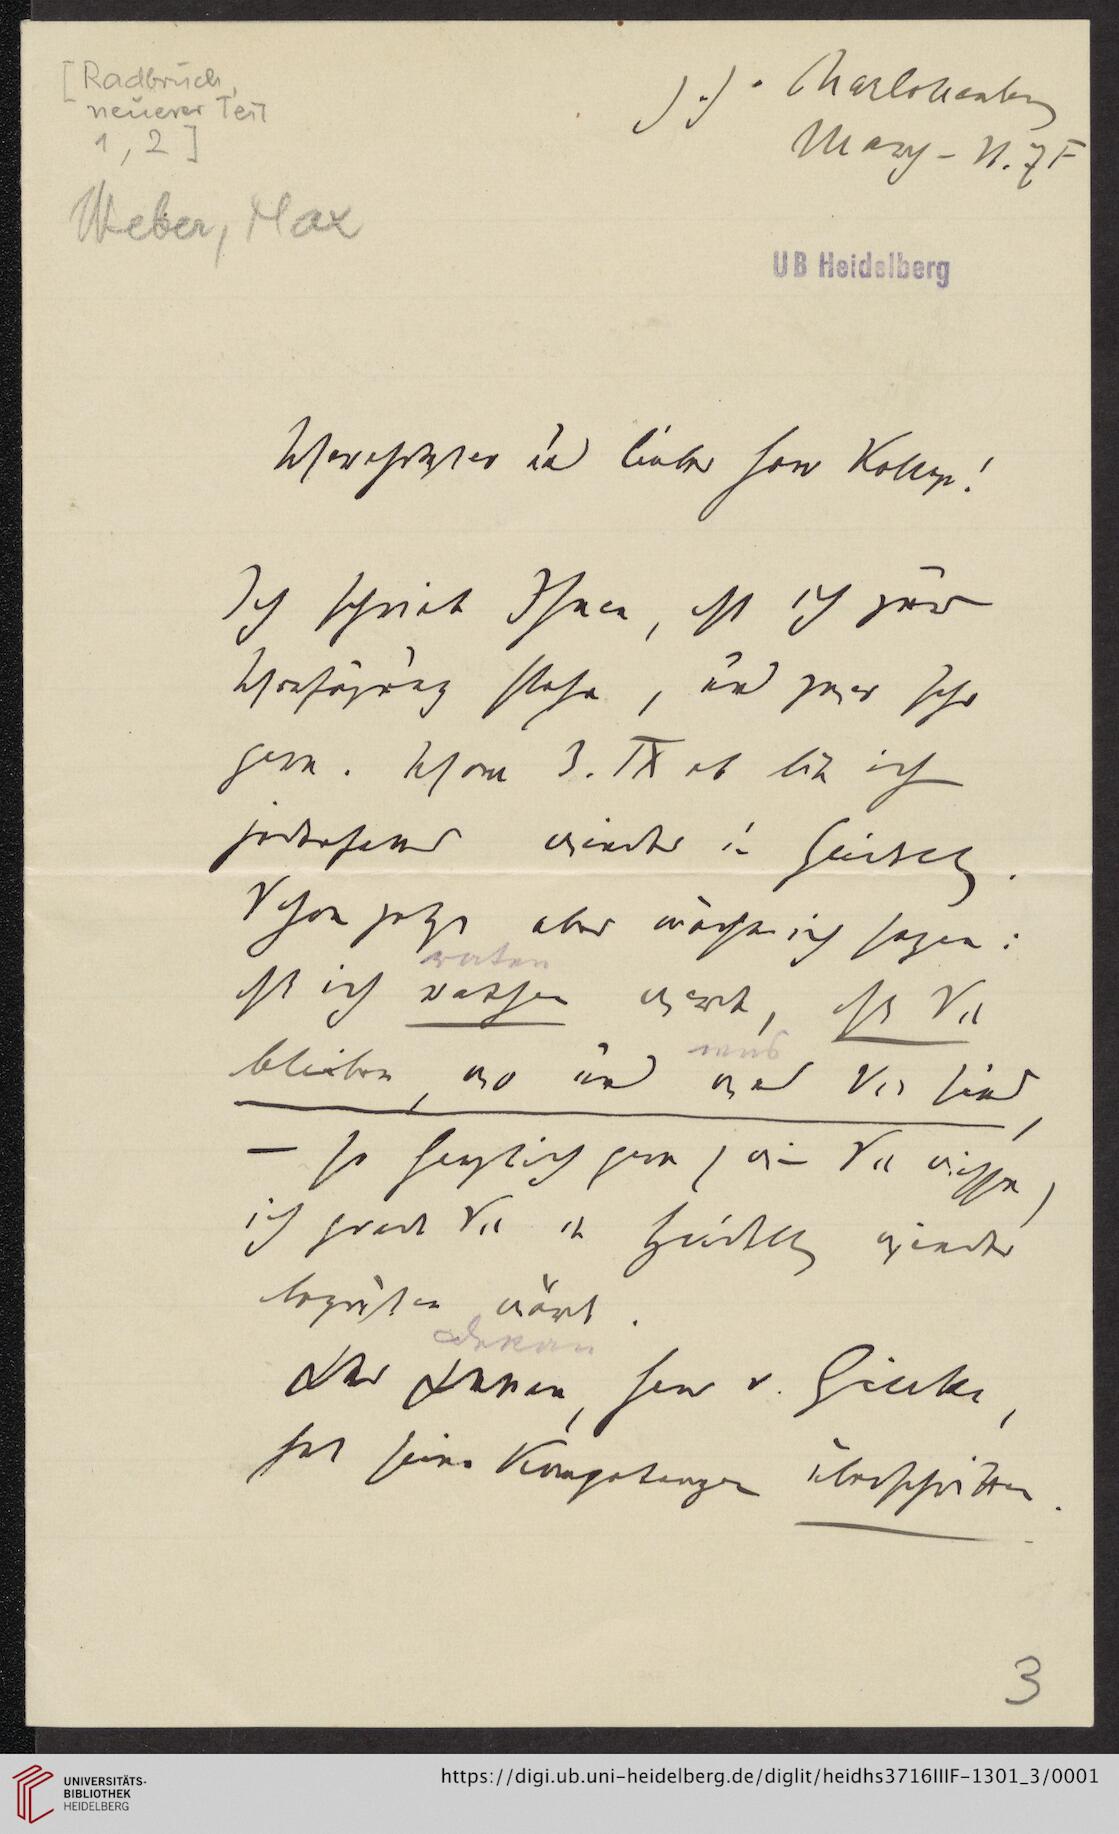 [Radbruch,
neuerer Teil
1, 2]
Weber, Max
z.Z. Charlottenburg
UB Heidelberg
Verehrtester und lieber Herr Kollege!
Ich schrieb Ihnen, daß ich zur
Verfügung stehe, und zwar sehr
gern. Vom 3. IX ab bin ich
jedenfalls wieder in Heidelbg.
Schon jetzt aber möchte ich sagen:
raten
daß ich rathen werde, daß Sie
was
bleiben, wo und was Sie sind,
– so herzlich gern, wie Sie wissen,
ich grade Sie in Heidelbg wieder
begrüßen würde.
Dekan
Der Dekan, Herr v. Gierke,
hat seine Kompetenzen überschritten.
3
UNIVERSITÄTS-
BIBLIOTHEK
HEIDELBERG
https://digi.ub.uni-heidelberg.de/diglit/heidhs3716IIIF-1301_3/0001